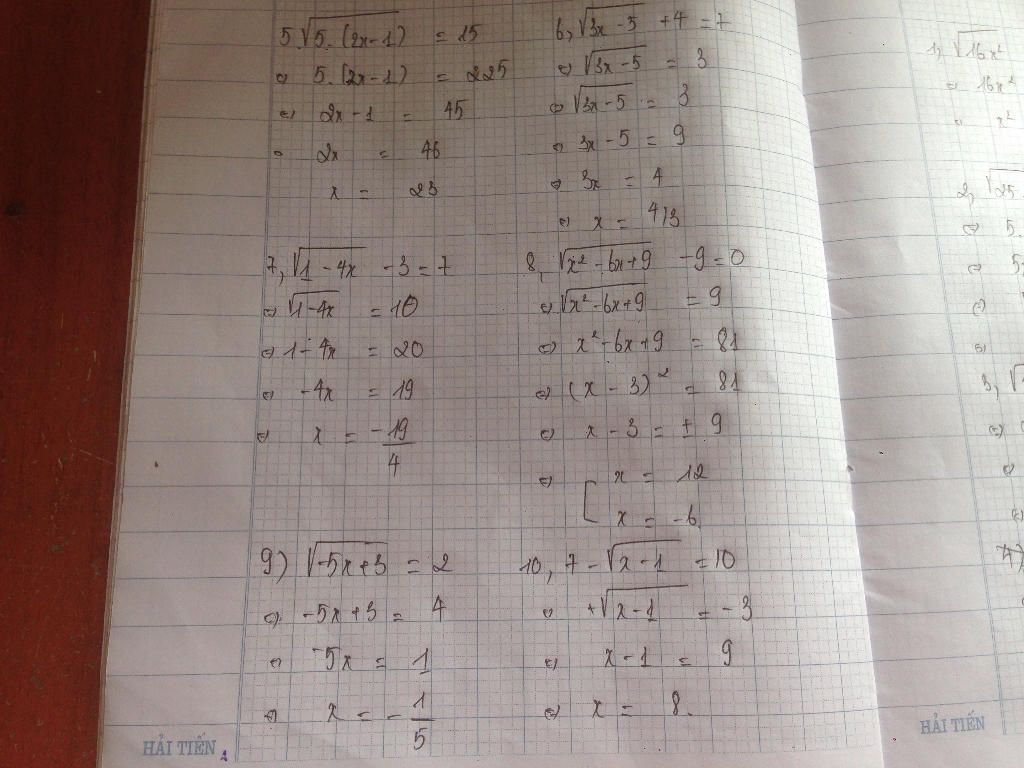 5.√5.(2x-1) = 15
⇔ 5.(2x-1) = 225
⇔ 2x-1 = 45
⇔ 2x = 46
x = 23
6, √3x-5 +4 = 7
⇔ √3x-5 = 3
⇔ √3x-5 = 3
⇔ 3x-5 = 9
⇔ 3x = 4
⇔ x = 4/3
7, √1-4x -3 = 7
⇔ √1-4x = 10
⇔ 1-4x = 20
⇔ -4x = 19
⇔ x = -19/4
8, √x²-6x+9 -9 = 0
⇔ √x²-6x+9 = 9
⇔ x²-6x+9 = 81
⇔ (x-3)² = 81
⇔ x-3 = ± 9
⇔ [ x = 12
x = -6
9) √-5x+3 = 2
⇔ -5x+3 = 4
⇔ -5x = 1
⇔ x = -1/5
10, 7-√x-1 = 10
⇔ +√x-1 = -3
⇔ x-1 = 9
⇔ x = 8.
HẢI TIẾN
1, √16x²
⇔ 16x²
⇔ x²
2, √25
⇔ 5.
⇔ 5x
3, √
4)
HẢI TIẾN